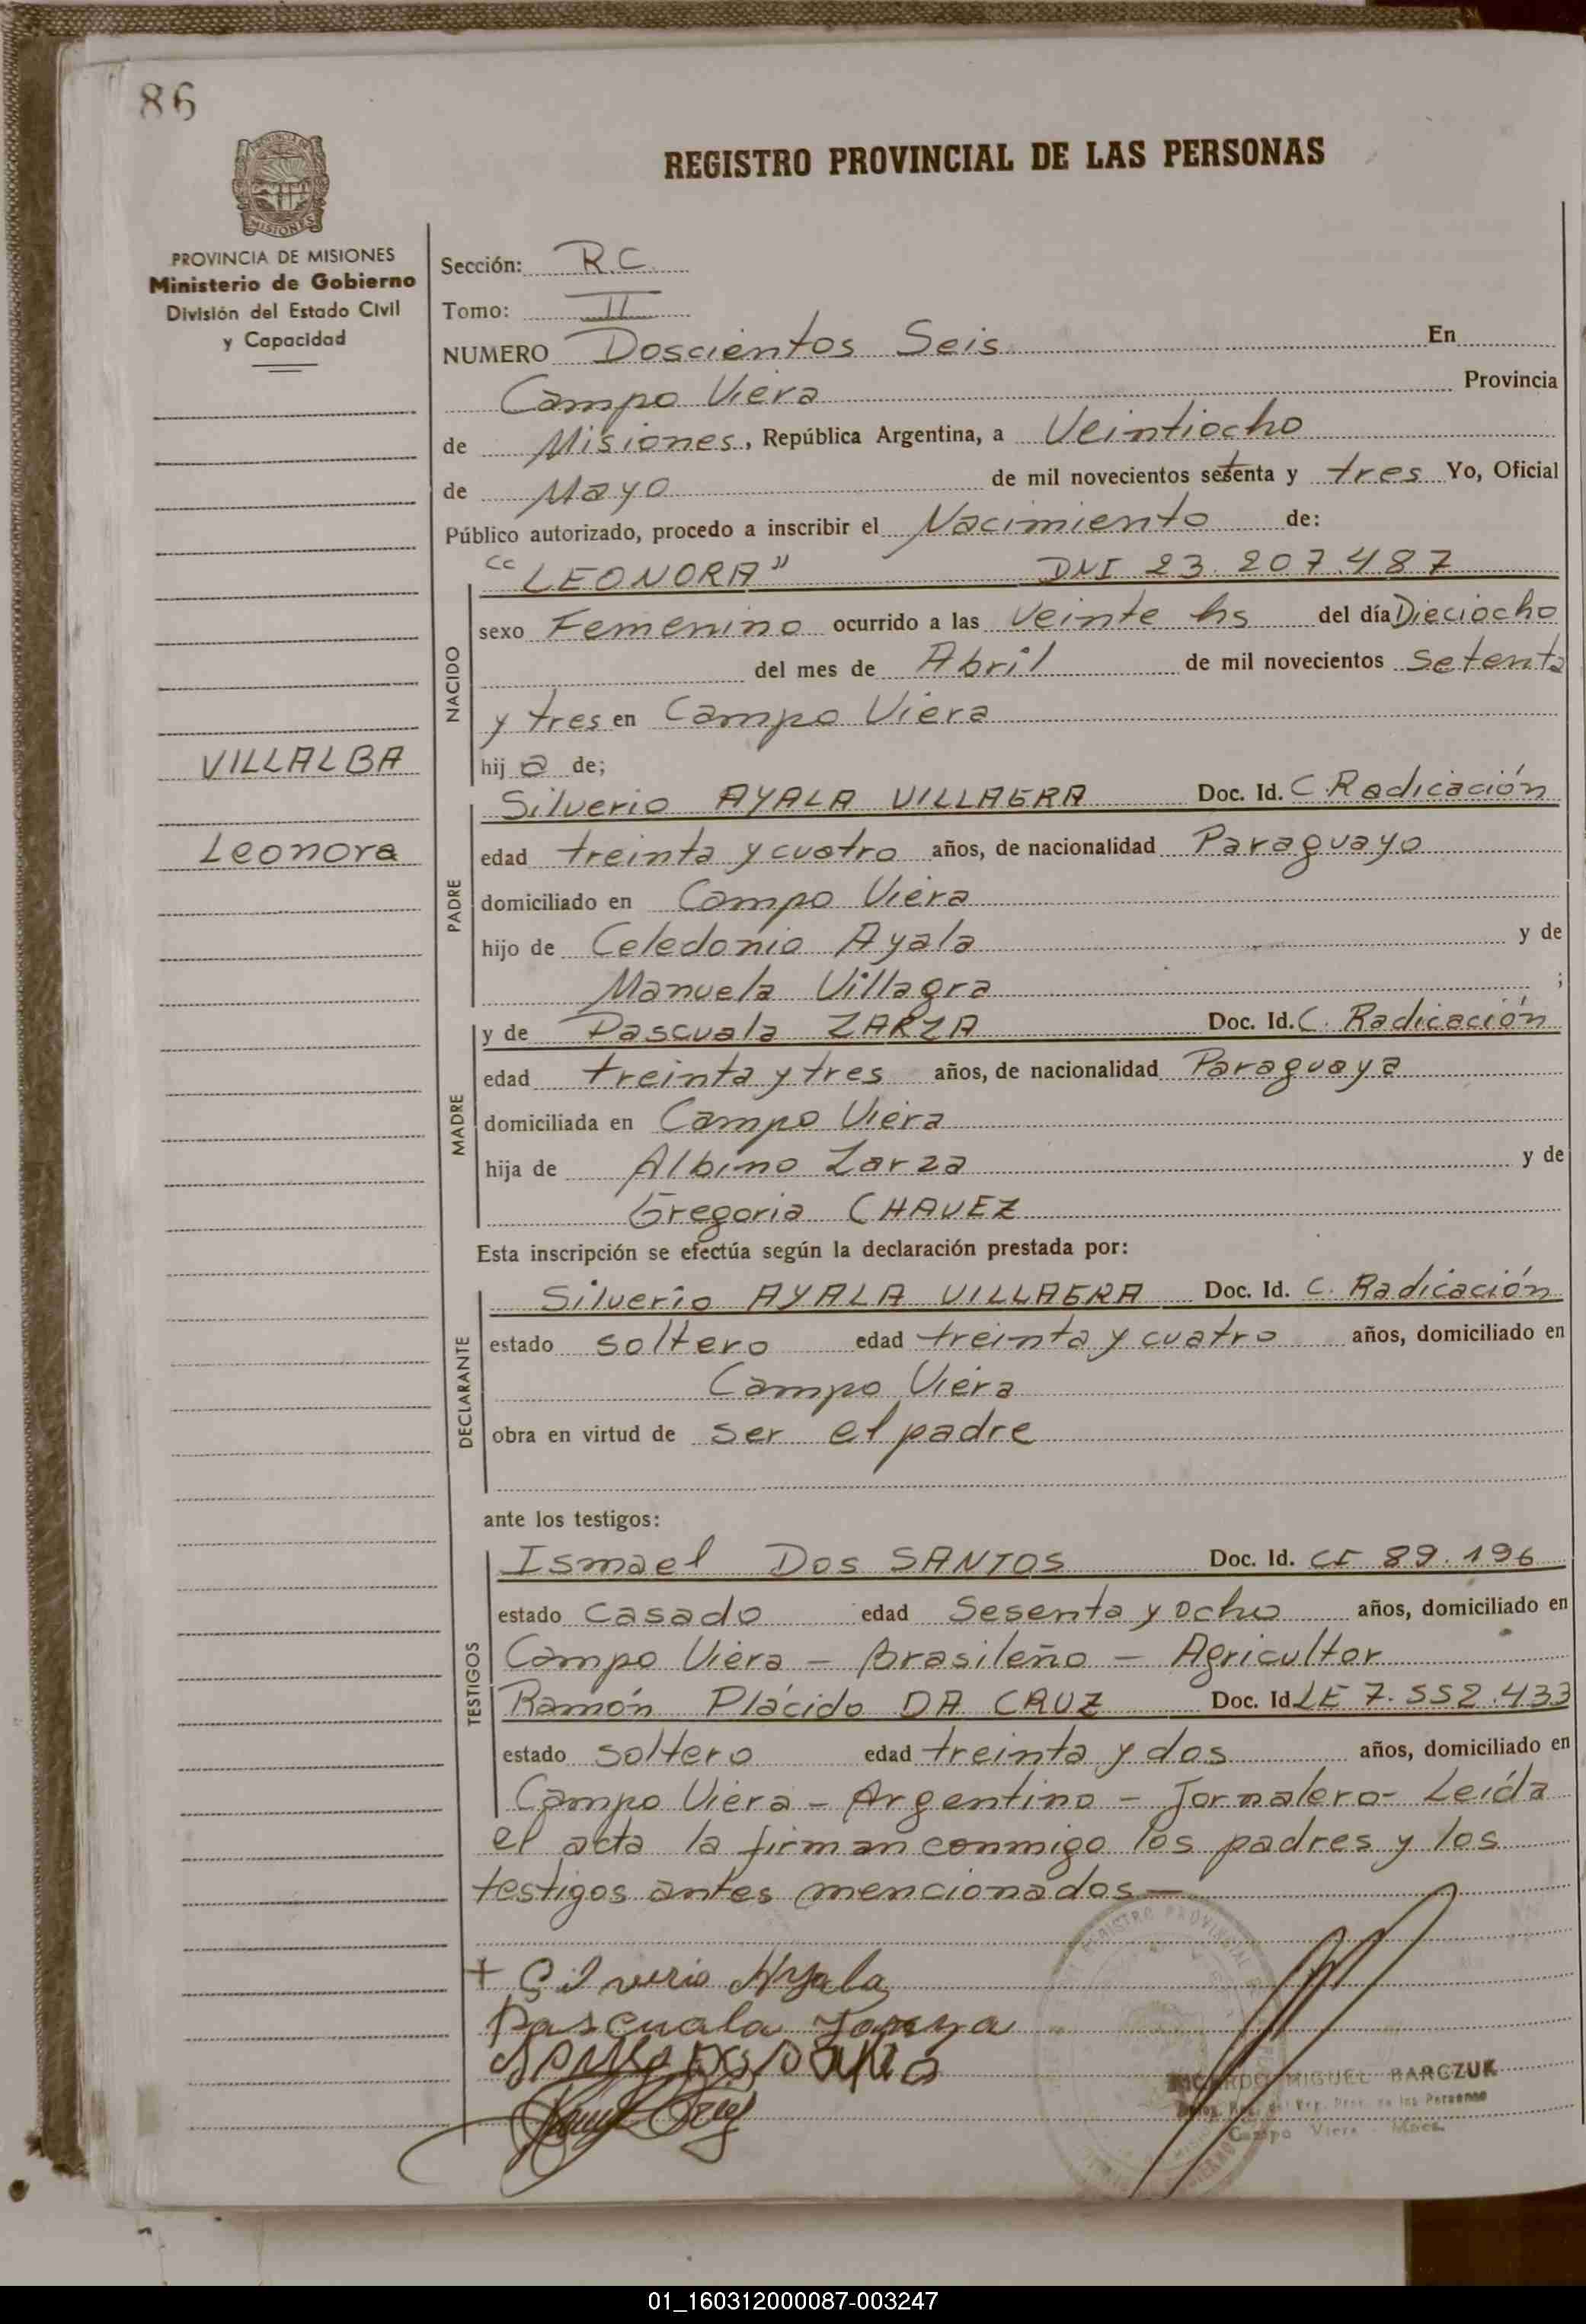 86
MISIONES
REGISTRO PROVINCIAL DE LAS PERSONAS
PROVINCIA DE MISIONES
Ministerio de Gobierno
División del Estado Civil
y Capacidad
Sección: R.C.
Tomo: II
NUMERO Doscientos Seis En
Campo Viera Provincia
de Misiones, República Argentina, a Veintiocho
de Mayo de mil novecientos setenta y tres Yo, Oficial
Público autorizado, procedo a inscribir el Nacimiento de:
"LEONORA" DNI 23.207.487
NACIDO
sexo Femenino ocurrido a las Veinte hs del día Dieciocho
del mes de Abril de mil novecientos setenta
y tres en Campo Viera
hij a de;
VILLALBA
Leonora
PADRE
Silverio AYALA VILLAGRA Doc. Id. C. Radicación
edad treinta y cuatro años, de nacionalidad Paraguayo
domiciliado en Campo Viera
hijo de Celedonio Ayala y de
Manuela Villagra ;
MADRE
y de Pascuala ZARZA Doc. Id. C. Radicación
edad treinta y tres años, de nacionalidad Paraguaya
domiciliada en Campo Viera
hija de Albino Zarza y de
Gregoria CHAVEZ
Esta inscripción se efectúa según la declaración prestada por:
DECLARANTE
Silverio AYALA VILLAGRA Doc. Id. C. Radicación
estado soltero edad treinta y cuatro años, domiciliado en
Campo Viera
obra en virtud de ser el padre
ante los testigos:
TESTIGOS
Ismael Dos SANTOS Doc. Id. CI 89.196
estado casado edad Sesenta y ocho años, domiciliado en
Campo Viera - Brasileño - Agricultor
Ramón Plácido DA CRUZ Doc. Id. LE 7.552.433
estado soltero edad treinta y dos años, domiciliado en
Campo Viera - Argentino - Jornalero - Leída
el acta la firman conmigo los padres y los
testigos antes mencionados —
+ Silverio Ayala
Pascuala Zarza
REGISTRO PROVINCIAL
RICARDO MIGUEL BARCZUK
Campo Viera - Mnes.
01_160312000087-003247